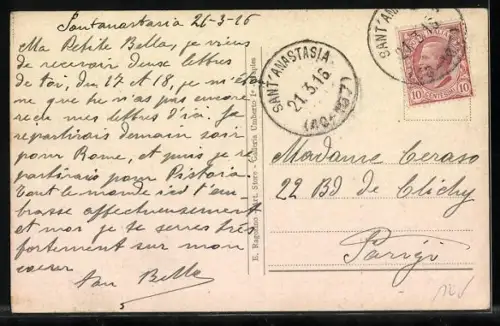 Santanastasia 21-3-16
Ma Petite Bella, je viens
de recevoir deuse lettres
de toi, du 17 et 18, je m'étone
me que tu n'as pas encore
reçu mes lettres d'ici. Je
repartirais demain soir
pour Rome, et puis je re
partirais pour Pistoria.
Tout le monde ici t'em-
brasse affectueusement
et moi je te serres très
fortement sur mon
coeur
ton Bello
E. Ragozino Edit. Store - Galleria Umberto Iº Naples
SANT'ANASTASIA
21.3.16
SANT'ANASTASIA
21.3.16
10 CENTESIMI 10
Madame Ceraso
22 BD de Clichy
Parigi